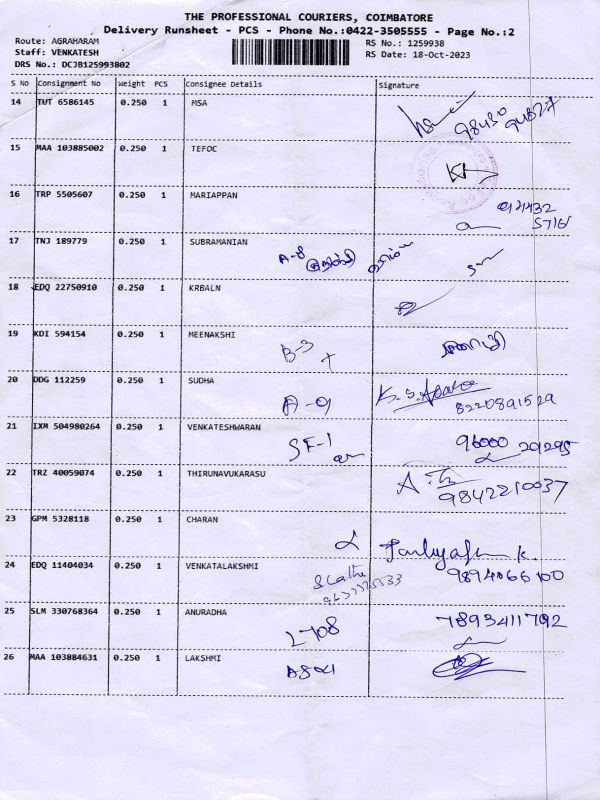 THE PROFESSIONAL COURIERS, COIMBATORE
Delivery Runsheet - PCS - Phone No.:0422-3505555 - Page No.:2
Route: AGRAHARAM RS No.: 1259938
Staff: VENKATESH RS Date: 18-Oct-2023
DRS No.: DCJB125993802
S No Consignment No Weight PCS Consignee Details Signature
14 TUT 6586145 0.250 1 MSA
98430 94877
15 MAA 103885002 0.250 1 TEFOC
16 TRP 5505607 0.250 1 MARIAPPAN
5716
17 TNJ 189779 0.250 1 SUBRAMANIAN
A-8
18 EDQ 22750910 0.250 1 KRBALN
19 KDI 594154 0.250 1 MEENAKSHI
B-3
20 DDG 112259 0.250 1 SUDHA
A-9 8220891529
21 IXM 504980264 0.250 1 VENKATESHWARAN
SF-1 96000 29295
22 TRZ 40059074 0.250 1 THIRUNAVUKARASU
9842210037
23 GPM 5328118 0.250 1 CHARAN
24 EDQ 11404034 0.250 1 VENKATALAKSHMI
9894066100
25 SLM 330768364 0.250 1 ANURADHA
L708 7893411792
26 MAA 103884631 0.250 1 LAKSHMI
A504